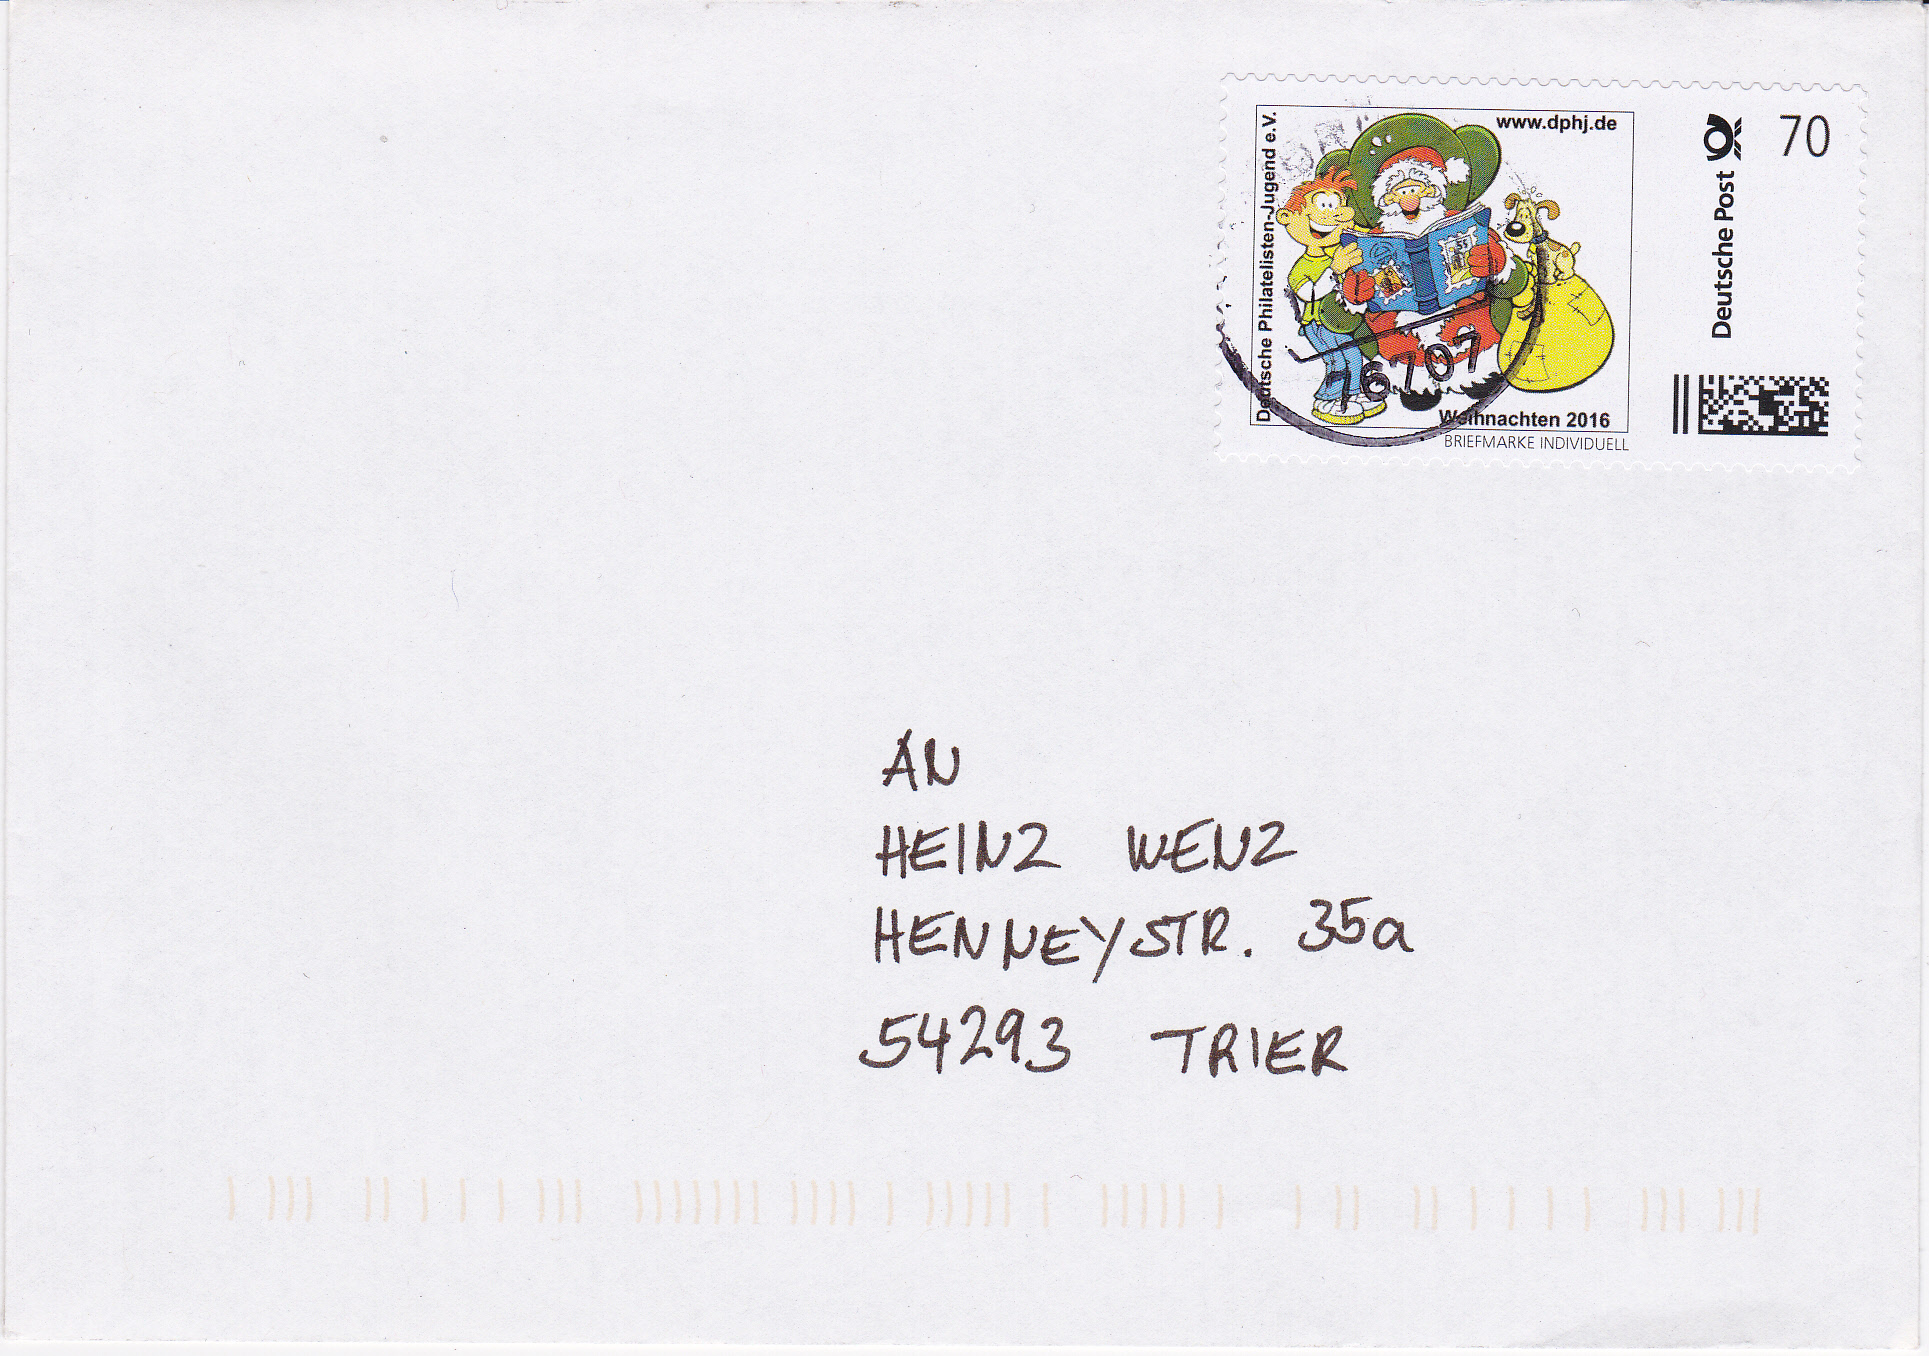 Deutsche Philatelisten-Jugend e.V.
www.dphj.de
Weihnachten 2016
BRIEFMARKE INDIVIDUELL
Deutsche Post
70
AN
HEINZ WENZ
HENNEYSTR. 35a
54293 TRIER